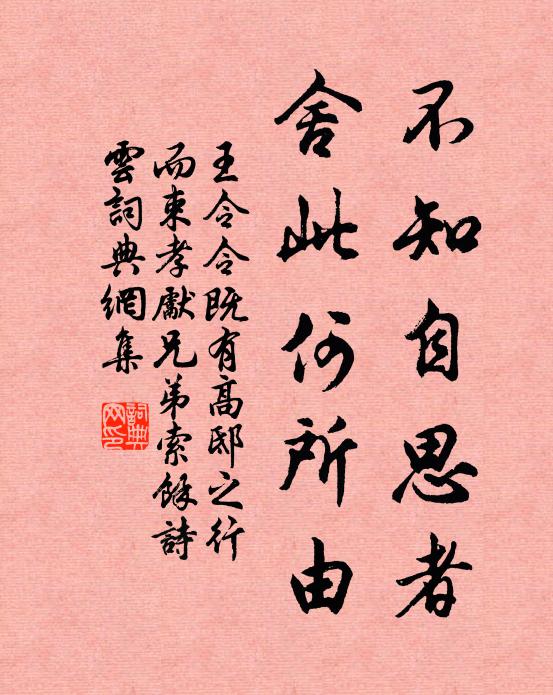 不知自思者
舍此何所由
王令令既有高邮之行
而東孝獻兄弟索餘詩
雲詞典網集
詞典网印